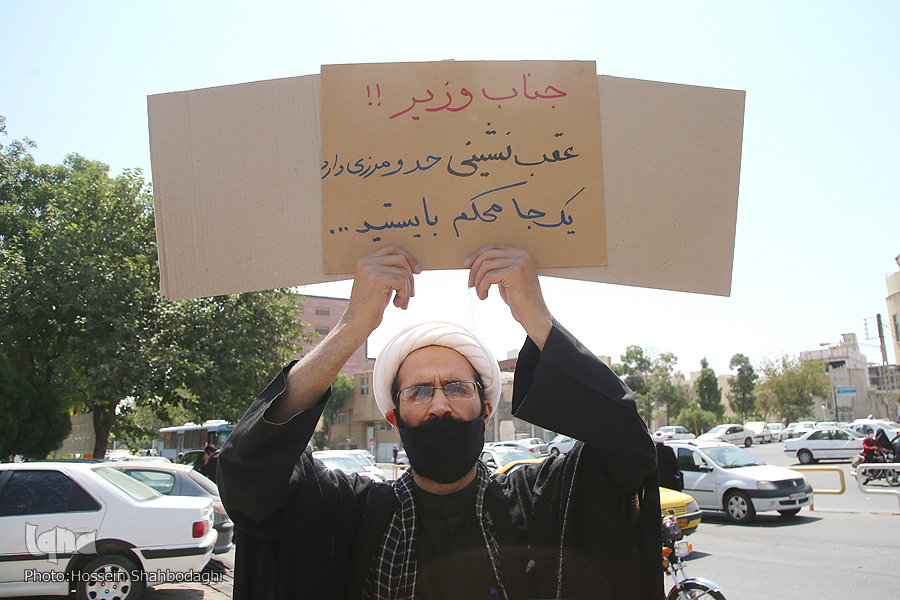 جناب وزیر !!
عقب نشینی حد و مرزی دارد
یک جا محکم بایستید ...
iqna
Photo:Hossein Shahbodaghi